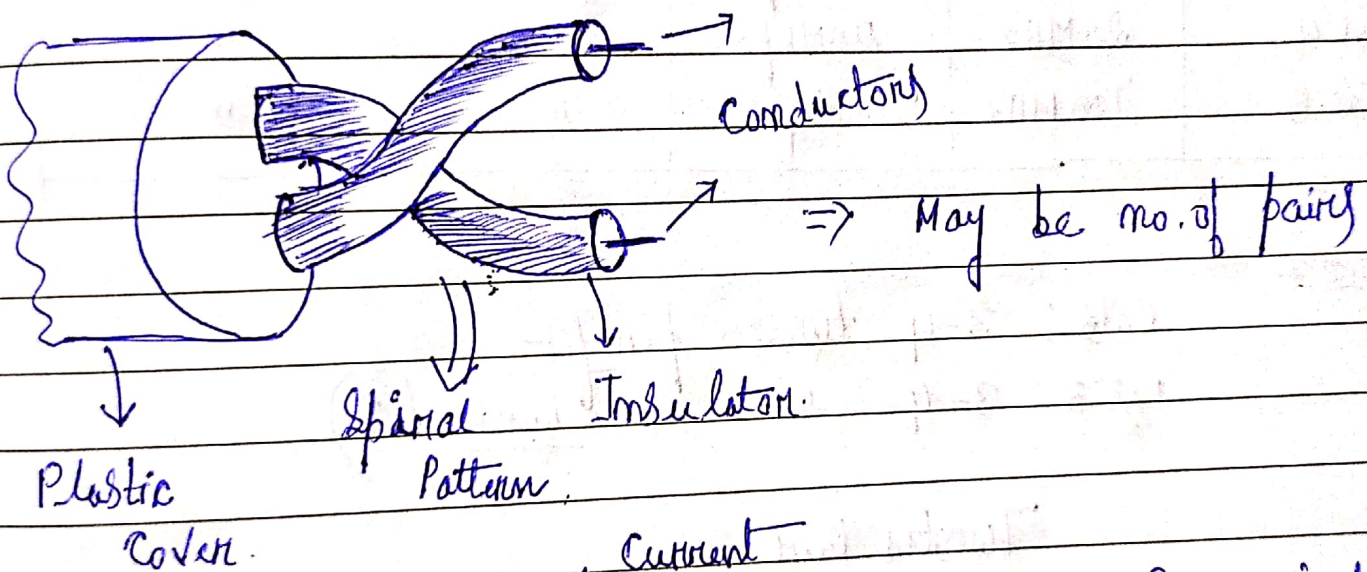 Conductors
=> May be no. of pairs
Spiral
Pattern.
Insulator.
Plastic
Cover.
Current